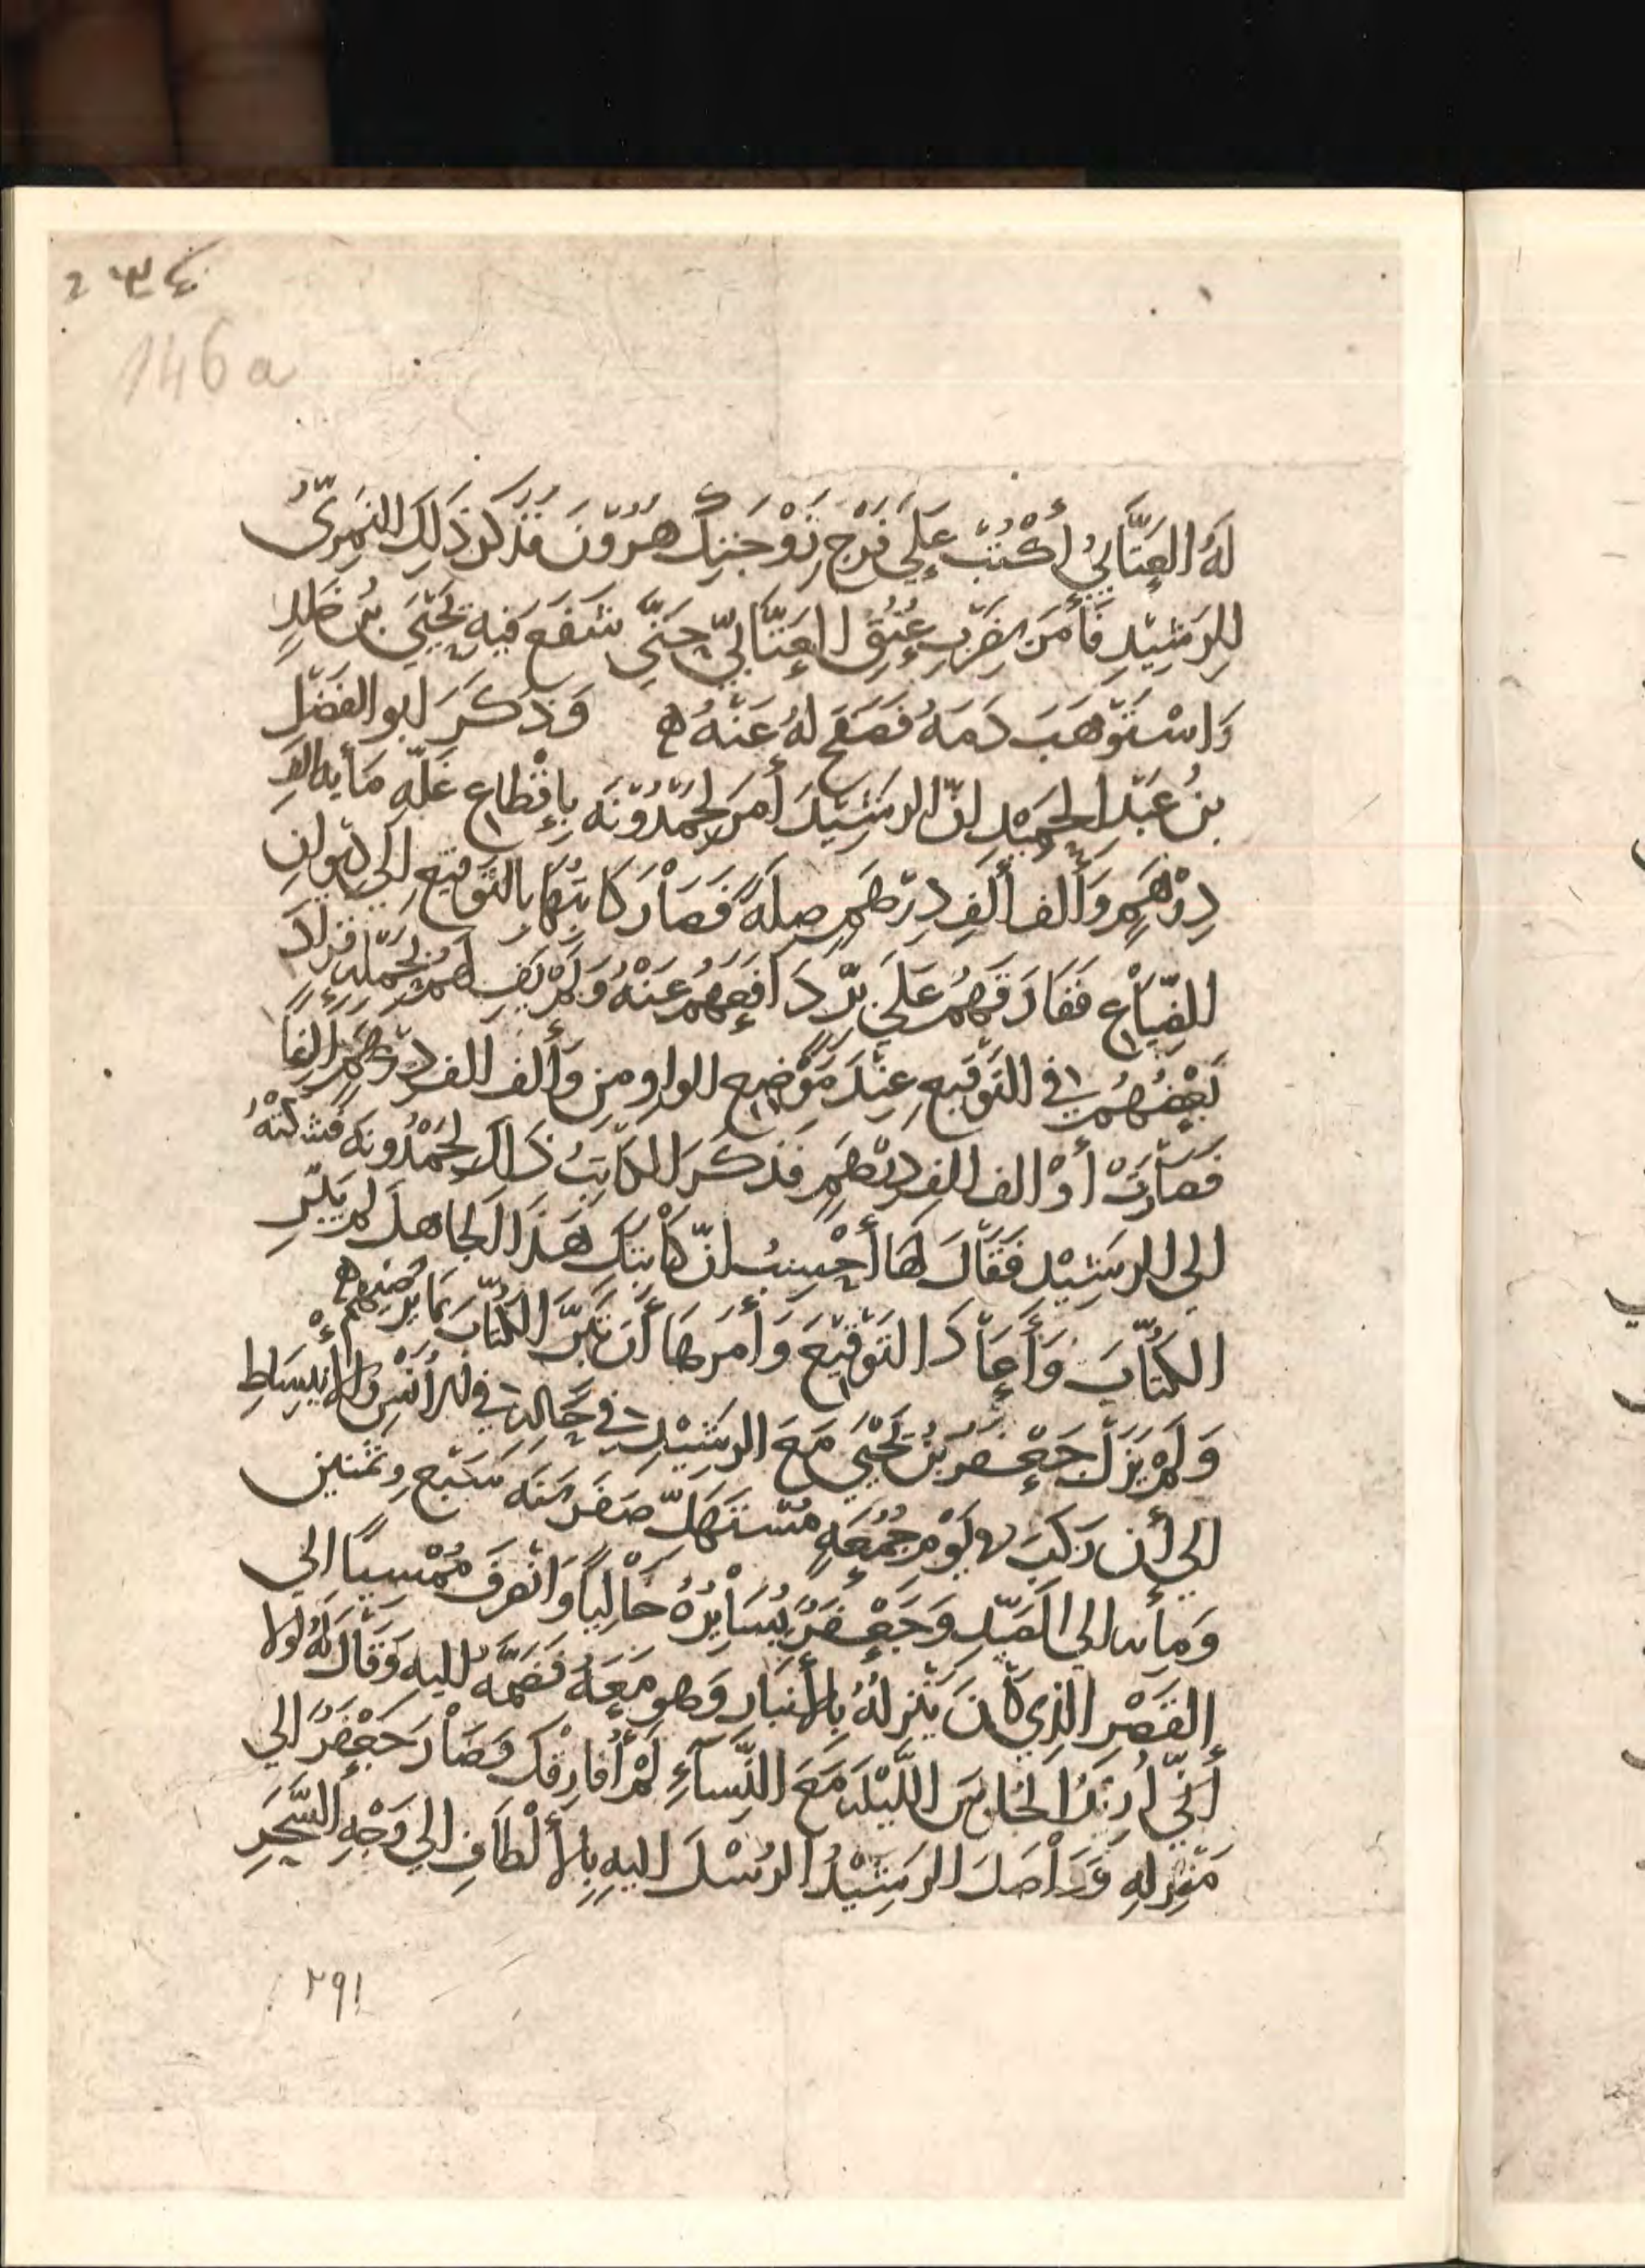 ٢٣٤
146 a
لَهُ العَتَّابِيُّ أُكْتُبْ عَلَى فَرْجِ زَوْجَتِكَ هٰرُونَ فَذَكَرَ ذَلِكَ النَمِرِىُّ
لِلرَشِيْدِ فَأَمَرَ بِضَرْبِ عُنُقِ العَتَّابِيِّ حَتَّى شَفَعَ فِيهِ يَحْيَى بنُ خَلِدٍ
وَاسْتَوْهَبَ دَمَهُ فَصَفَحَ لَهُ عَنْهُ ه وَذَكَرَ ابو الفَضْلِ
بنُ عَبْدِ الحَمِيْدِ انّ الرَشِيْدَ أَمَرَ لِحَمْدُوْنَةَ بِإِقْطَاعِ غَلَّهِ مَأيه الفِ
دِرْهَمٍ وَأَلف أَلفِ دِرْهَمٍ صِلَةً فَصَارَ كَاتِبُهَا بالتَوْقِيعِ إِلَى دِيوانِ
الضِّيَاعِ فَفَارَقَهُمْ عَلَى بِرٍّ دَافَعَهُمْ عَنْهُ وَلَمْ يَفِ لَهُمْ بِحَمْلِهِ فَزَادَ
بَعْضُهُمْ فى التَوْقِيعِ عِنْدَ مَوْضِعِ الواوِ من وَأَلف الف دِرْهَمٍ الِفًا
فَصَارَتْ أَوْ الف الفِ دِرْهَمٍ فَذَكَرَ الكَاتِبُ ذَاكَ لِحَمْدُونَةَ فَشَكَتْهُ
الى الرَشِيْدِ فَقَالَ لهَا أَحْسِبُ انّ كَاتِبَكِ هَذَا الجَاهلَ لم يَبَرِّ
الكُتّابَ وَأَعَادَ التَوْقِيْعَ وَأَمَرَهَا أَن تَبَرَّ الكُتَّابَ بمَا يُرْضِيهِمْ ه
وَلَمْ يَزَلْ جَعْفَرُ بنُ يَحْيَى مَعَ الرَشِيْدِ فى حَالِهِ فى الأُنْسِ وَالإِنْبِسَاطِ
الى أَن رَكِبَ يَوْمَ جُمُعَهٍ مُسْتَهَلّ صَفَر سَنَه سَبْعٍ وثمنين
وَمِأيه الى الصَيْدِ وَجَعْفَرٌ يُسَايِرُهُ خَالِيًا وَانْصَرَفَ مُمْسِيًا الى
القَصْرِ الذِي كَانَ يَنْزِلهُ بِالأَنبَارِ وَهو مَعَهُ فَضَمَّهُ اليهِ وَقَالَ لَهُ لَولا
أَنِّي أُرِيْدُ الجُلُوسَ اللَّيْلَهَ مَعَ النِّسَآءِ لَمْ أُفَارِقْكَ فَصَارَ جَعْفَرُ الى
مَنْزِلِهِ وَوَاصَلَ الرَشِيْدُ الرُسْلَ اليهِ بِالأَلْطَافِ الى وَجْهِ السَّحَرِ
٢٩١